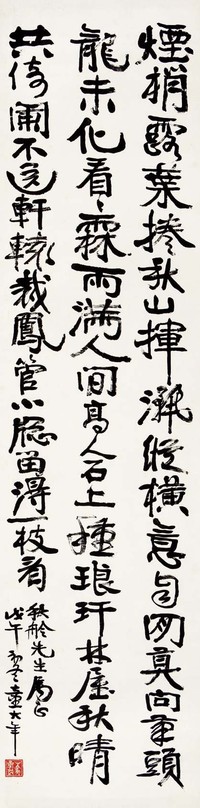 煙梢露葉捲秋山揮灑縱橫意自閑真向筆頭
龍未化看看霖雨滿人間高人石上種琅玕林屋秋晴
共倚闌不逐軒轅裁鳳管小窗留得一枝看
舲先生屬正
戊午冬童大年